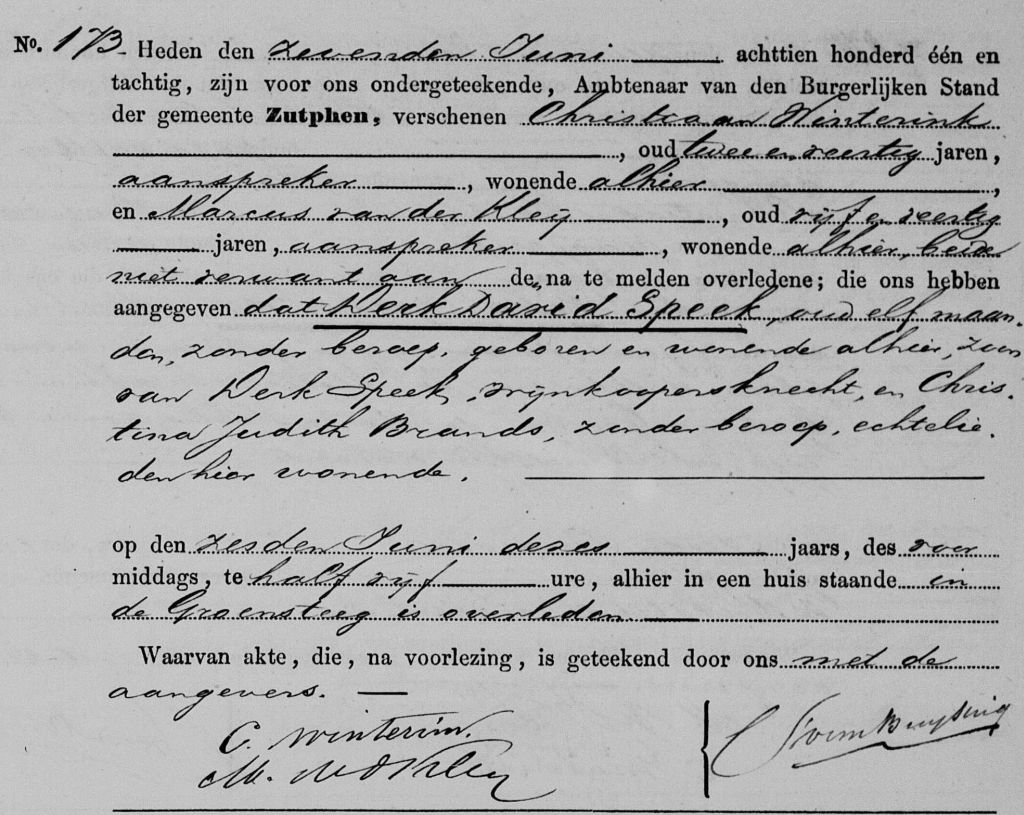 No. 173. Heden den zevenden Juni achttien honderd één en
tachtig, zijn voor ons ondergeteekende, Ambtenaar van den Burgerlijken Stand
der gemeente Zutphen, verschenen Christiaan Winterink
, oud twee en veertig jaren,
aanspreker, wonende alhier,
en Marcus van der Kleij, oud vijf en veertig
jaren, aanspreker, wonende alhier, beide
niet verwant aan de, na te melden overledene; die ons hebben
aangegeven dat Derk David Speek, oud elf maan-
den, zonder beroep, geboren en wonende alhier, zoon
van Derk Speek, wijnkoopersknecht, en Chris-
tina Judith Brands, zonder beroep, echtelie-
den hier wonende.
op den zesden Juni dezes jaars, des voor
middags, te half vijf ure, alhier in een huis staande in
de Groensteeg is overleden
Waarvan akte, die, na voorlezing, is geteekend door ons met de
aangevers.
C. Winterink
M. vd Kleij